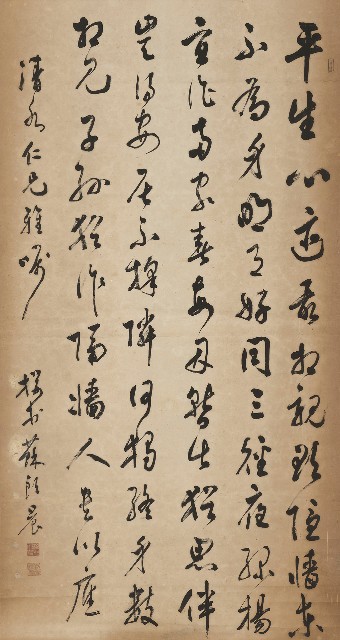 平生心迹最相親欲隱墻東
不為身明月好同三徑夜綠楊
宜作兩家春每因暫出猶思伴
豈得安居不擇隣何獨終身數
相見子孫猶作隔墻人書以應
清 仁兄雅囑
蘇 晨